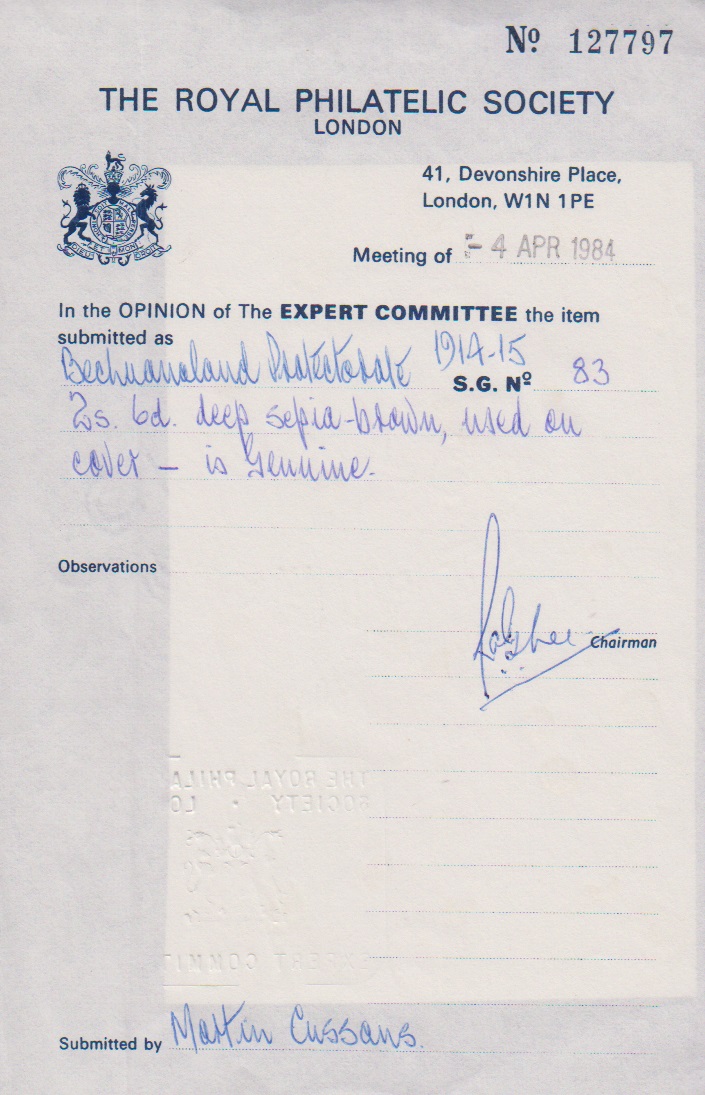 Nº 127797
THE ROYAL PHILATELIC SOCIETY
LONDON
41, Devonshire Place,
London, W1N 1PE
Meeting of - 4 APR 1984
In the OPINION of The EXPERT COMMITTEE the item
submitted as
Bechuanaland Protectorate 1914-15 S.G. Nº 83
2s. 6d. deep sepia-brown, used on
cover — is genuine.
Observations
Chairman
THE ROYAL PHILA
SOCIETY · LO
EXPERT COMMIT
Submitted by Martin Cussans.